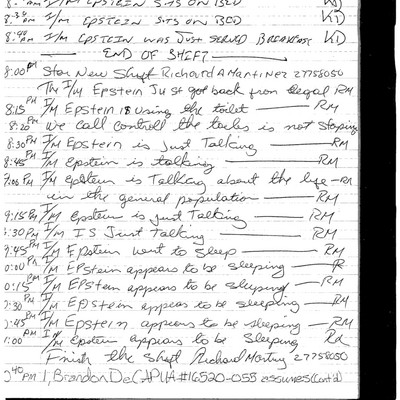 AM I/M EPSTEIN SITS ON BED KD
8:30 AM I/M EPSTEIN SITS ON BED KD
8:40 AM I/M EPSTEIN WAS JUST SERVED BREAKFAST KD
END OF SHIFT
8:00 PM Star New Shift Richard A Martinez 27758050
The I/M Epstein Just got back from legal RM
8:15 PM I/M Epstein is using the toilet RM
8:20 PM We call controll the toilet is not stoping
8:30 PM I/M Epstein is Just Talking RM
8:45 PM I/M Epstein is talking RM
9:00 PM I/M Epstein is Talking about the life RM
in the general population RM
9:15 PM I/M Epstein is just Talking RM
9:30 PM I/M IS Just talking RM
9:45 PM I/M Epstein went to sleep RM
0:00 PM I/M EPStein appears to be sleeping R
0:15 PM I/M EPStein appears to be sleeping RM
0:30 PM I/M EPStein appears to be sleeping RM
0:45 PM I/M Epstein appears to be sleeping RM
1:00 PM I/M Epstein appears to be Sleeping
Finish the Shift Richard Martinez 27758050
0:40 PM I, Brandon #16520-055 assumes (Cont'd)